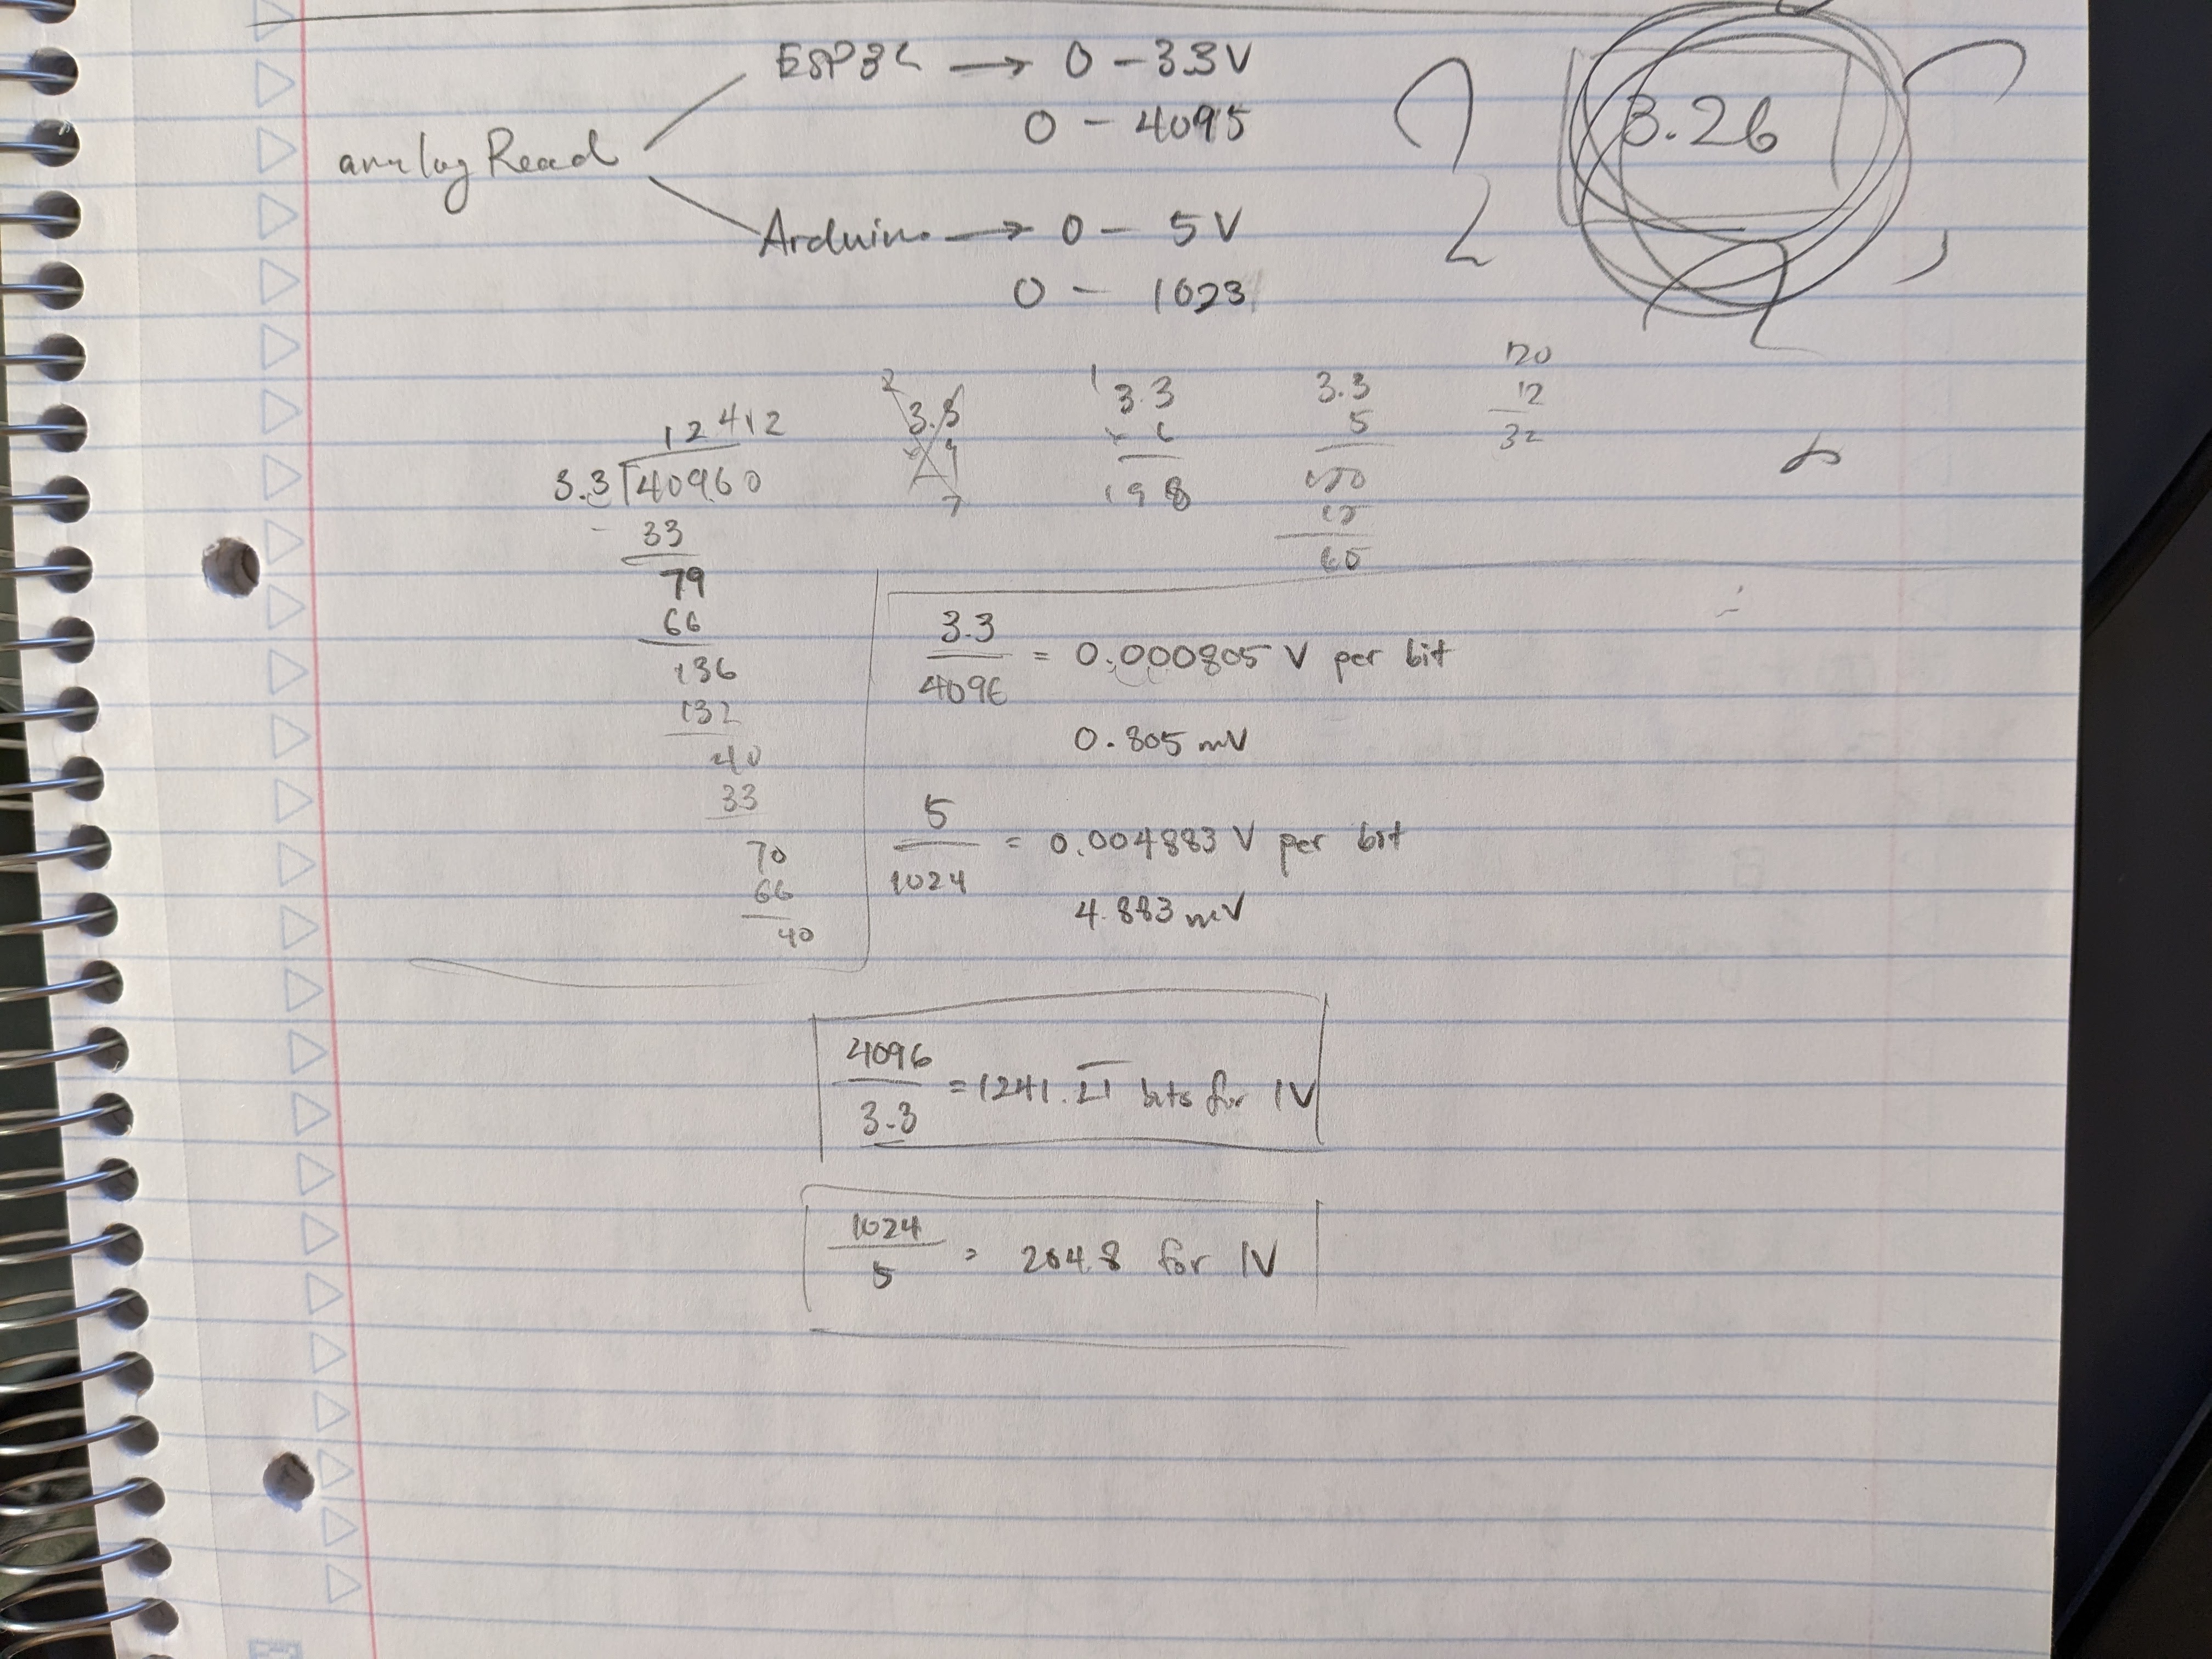 ESP32 → 0 - 3.3V
0 - 4095
3.26
analogRead
Arduino → 0 - 5V
0 - 1023
12412
3.3 40960
- 33
79
66
136
132
40
33
70
66
40
1
3.3
198
3.3
5
120
12
32
3.3
4096 = 0.000805 V per bit
0.805 mV
5
1024 = 0.004883 V per bit
4.883 mV
4096
3.3 = 1241.21 bits for 1V
1024
5 = 204.8 for 1V